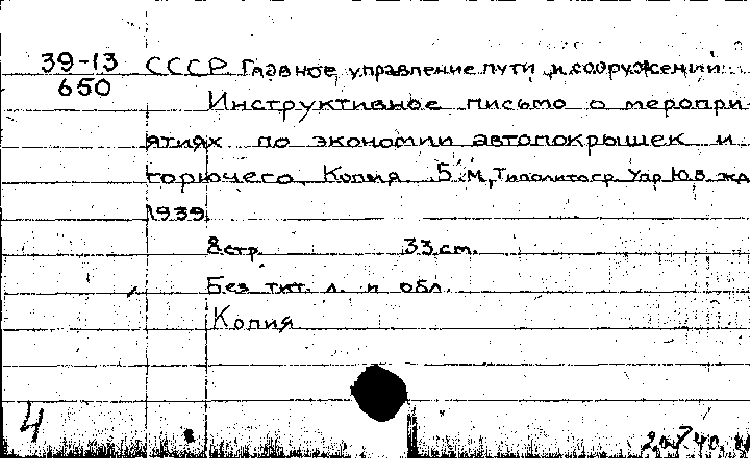 39-13 СССР Главное управление пути и сооружений
650
Инструктивное письмо о меропри
ятиях по экономии автопокрышек и
горючего. Копия. М, Типолитогр Упр Ю.В. жд
1939.
8 стр. 33 cm.
Без тит. л. и обл.
Копия
4